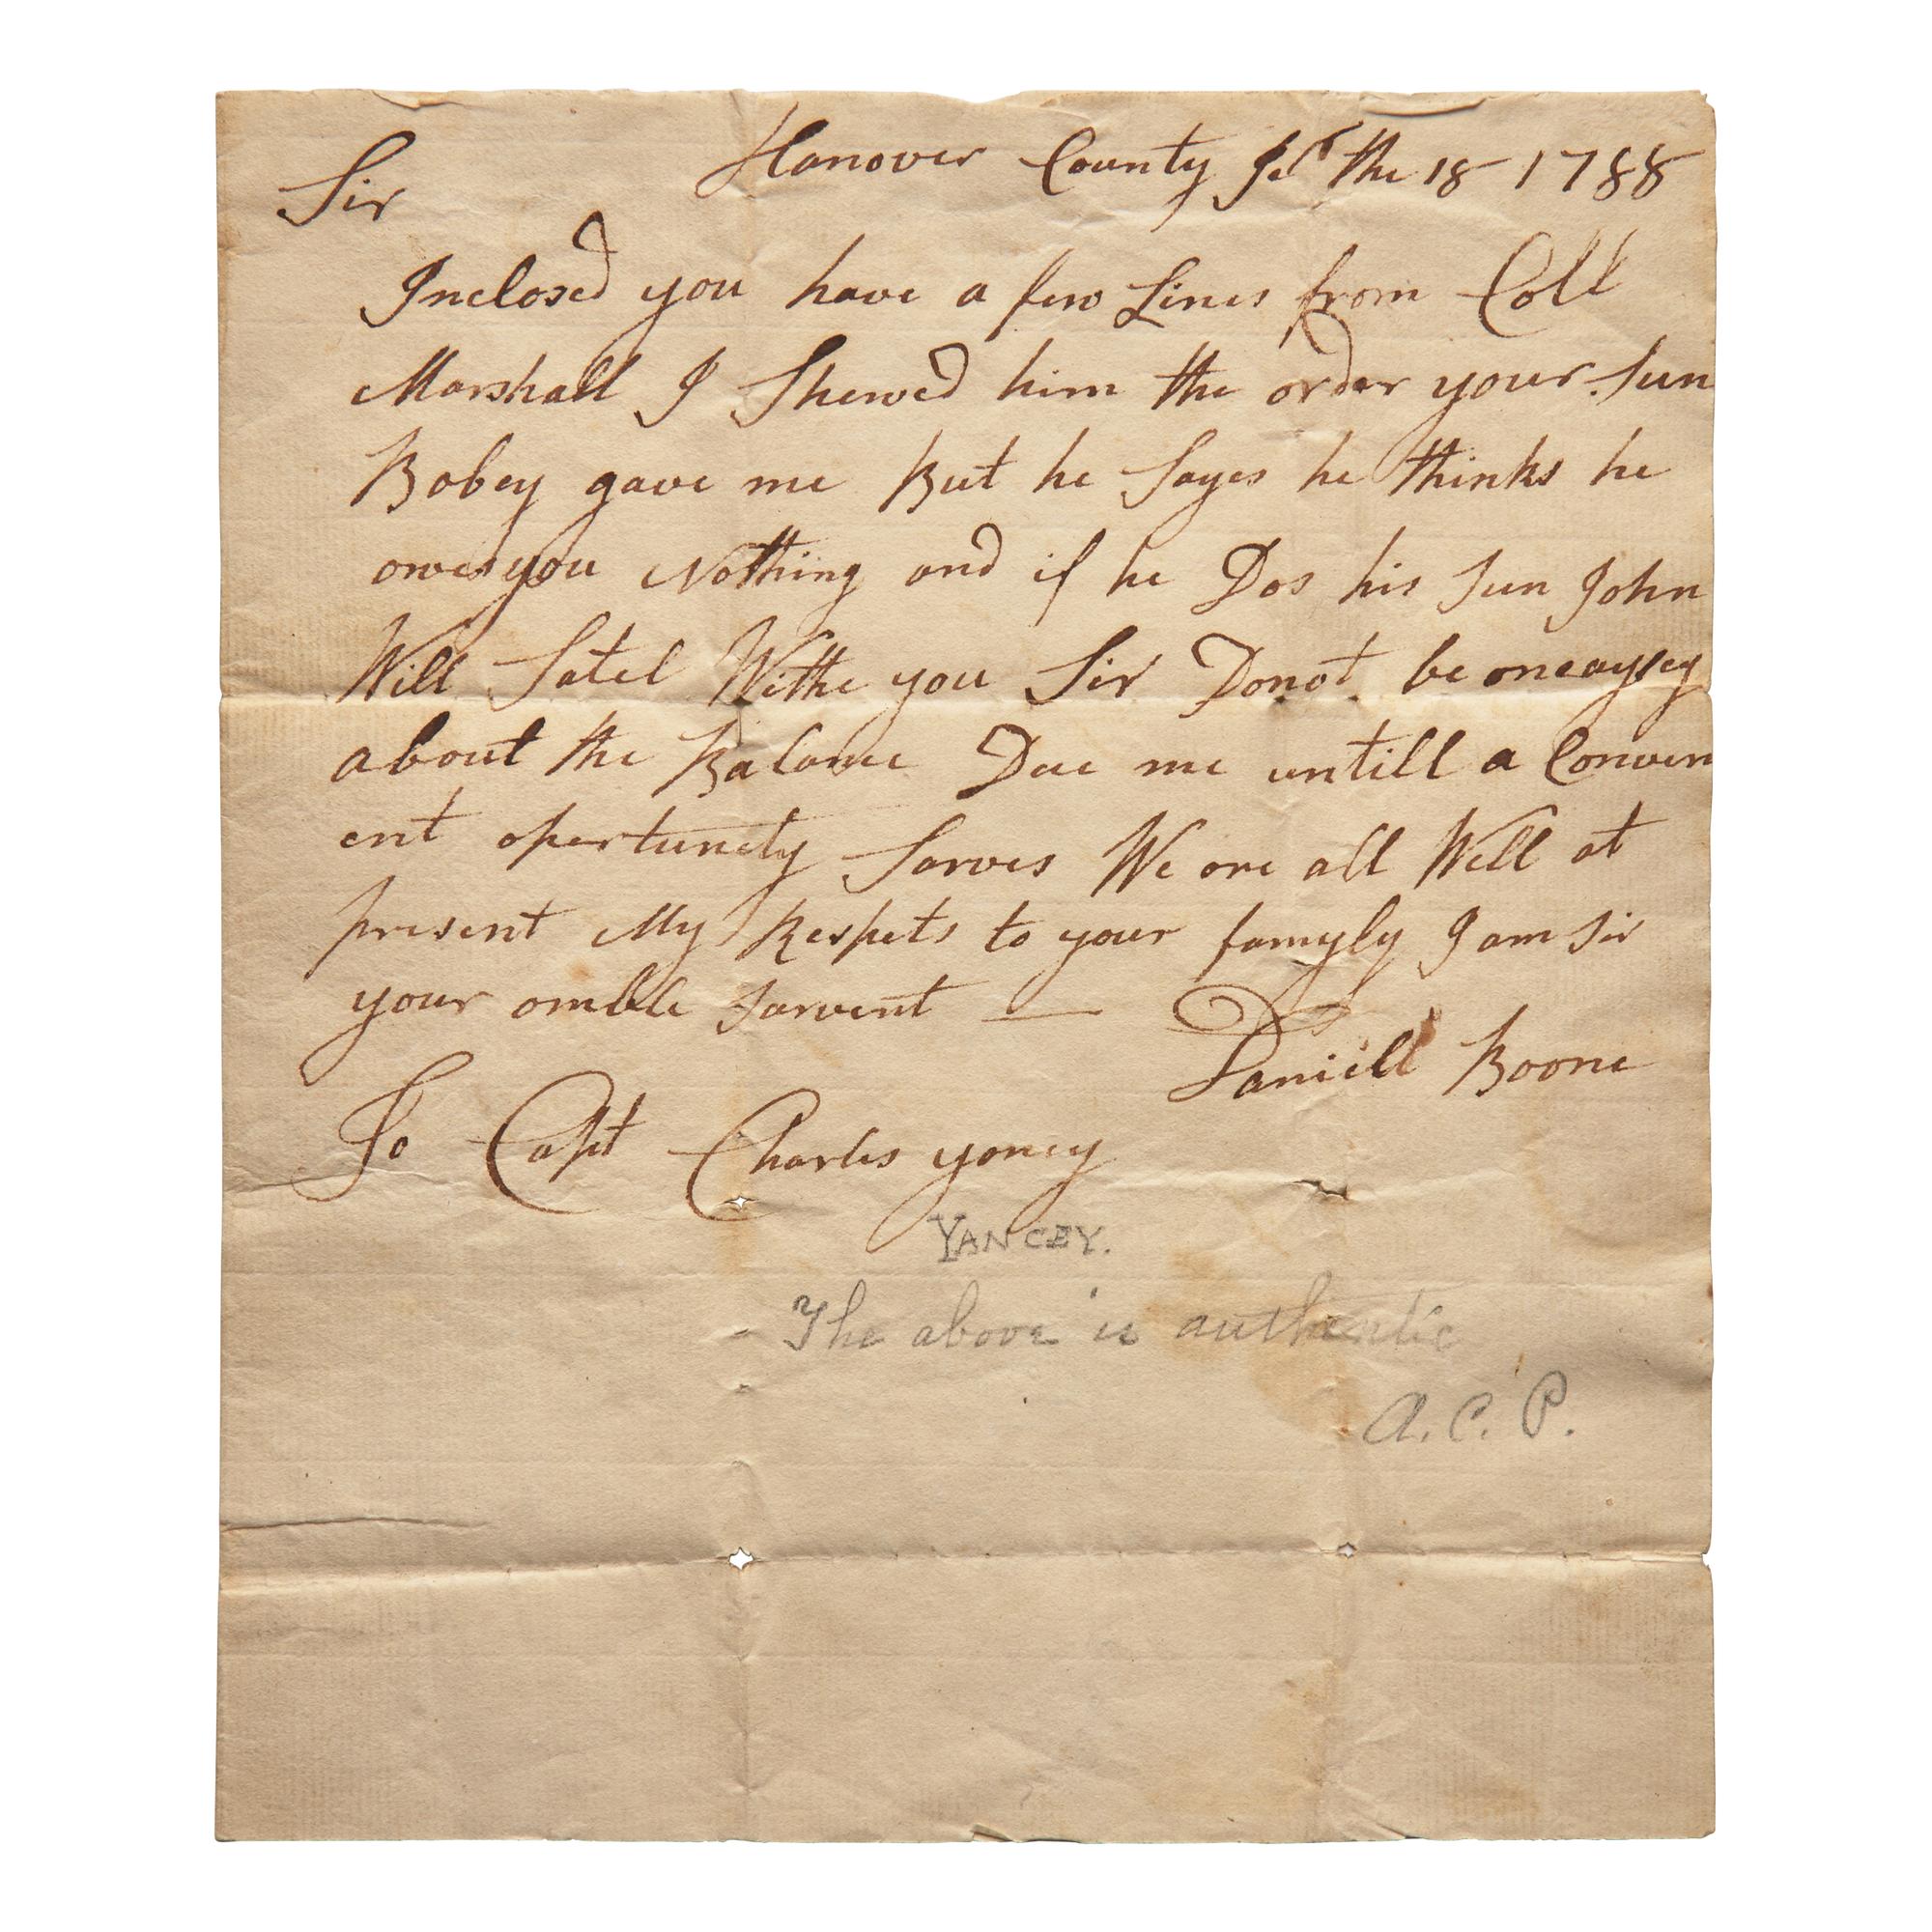 Hanover County the 18 1788
Sir
Inclosed you have a few Lines from Coll
Marshall I Shewed him the order your Sun
Bobey gave me But he Sayes he thinks he
owes you Nothing and if he Dos his Sun John
Will Satel Withe you Sir Donot be oneaysey
about the Balance Due me untill a Conven
ent opertunety Sarves We are all Well at
present My Respets to your famyly I am Sir
your omble Sarvent —
Daniell Boone
To Capt Charles yancy
YANCEY.
- The above is authentic
A. C. P.